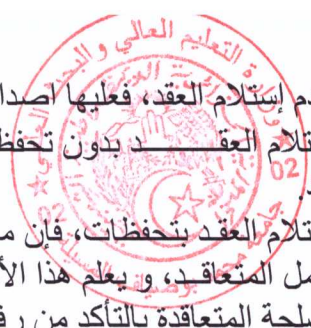 وزارة التعليم العالي و البحث العلمي
دم إستلام العقد، فعليها اصدا
تلام العقــــد بدون تحفظ
02
تلام العقد بتحفظات، فإن م
مل المتعاقد، و يعلم هذا الأ
لحة المتعاقدة بالتأكد من رف